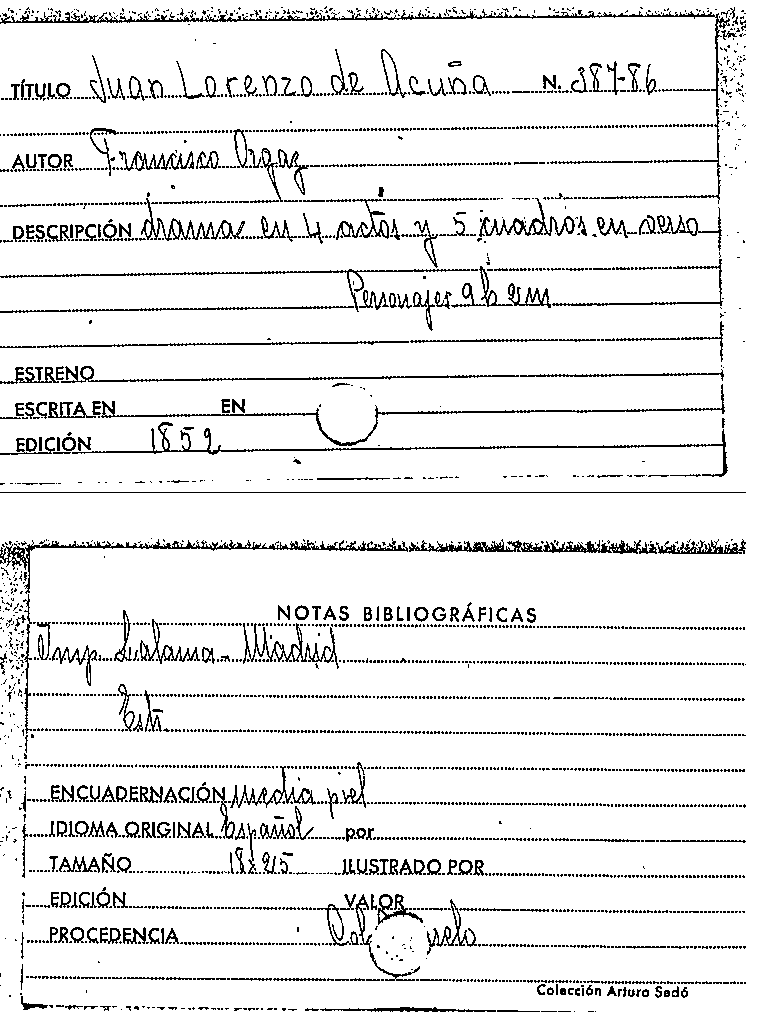 TÍTULO Juan Lorenzo de Acuña N. 387-86
AUTOR Francisco Orgaz
DESCRIPCIÓN drama en 4 actos y 5 cuadros en verso
Personajes 9 h 2 m
ESTRENO
ESCRITA EN EN
EDICIÓN 1852
NOTAS BIBLIOGRÁFICAS
Imp. Lalama - Madrid
ENCUADERNACIÓN media piel
IDIOMA ORIGINAL Español por
TAMAÑO ILUSTRADO POR
EDICIÓN VALOR
PROCEDENCIA
Colección Arturo Sedó